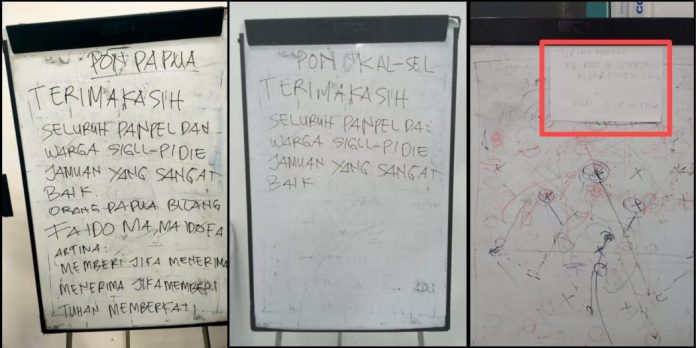 PON PAPUA
TERIMAKASIH
SELURUH PANPEL DAN
WARGA SIGLL-PIDIE
JAMUAN YANG SANGAT
BAIK
ORANG PAPUA BILANG
FAIDO MA, MA IDOFA
ARTINA:
MEMBERI JIKA MENERIMA
MENERIMA JIKA MEMBERI
TUHAN MEMBERKATI
PON KAL-SEL
TERIMAKASIH
SELURUH PANPEL DA
WARGA SIGLL-PIDIE
JAMUAN YANG SANGAT
BAIK